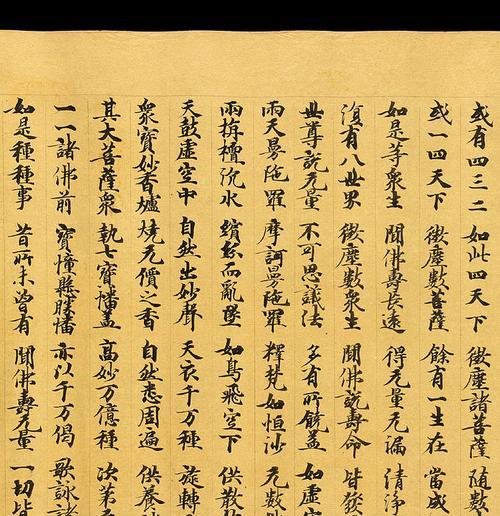 或有四三二 如此四天下 微塵諸菩薩 隨數
或一四天下 微塵數菩薩 餘有一生在 當成
如是等衆生 聞佛壽長遠 得无量无漏 清淨
復有八世界 微塵數衆生 聞佛說壽命 皆發
世尊說无量 不可思議法 多有所饒益 如虚
雨天曼陁羅 摩訶曼陁羅 釋梵如恒沙 无數
雨栴檀沉水 繽紛而亂墜 如鳥飛空下 供散
天鼓虚空中 自然出妙聲 天衣千万種 旋轉
衆寶妙香爐 燒无價之香 自然悉周遍 供養
其大菩薩衆 執七寶幡蓋 高妙万億種 次第
一一諸佛前 寶幢懸勝幡 亦以千万偈 歌詠諸
如是種種事 昔所未曾有 聞佛壽无量 一切皆